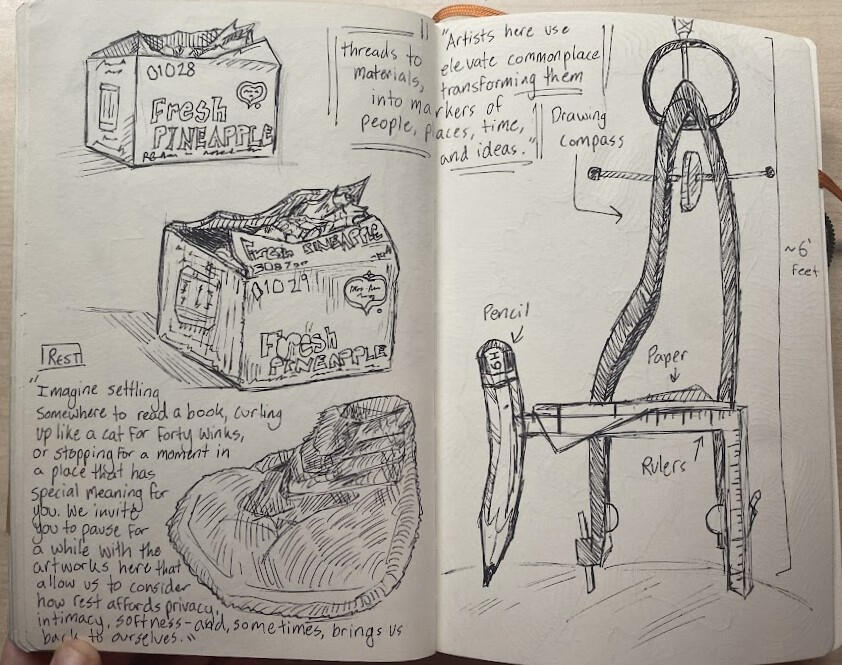 01028
Fresh
PINEAPPLE
"Artists here use
elevate commonplace
threads to
materials, transforming them
into markers of
people, places, time,
and ideas."
Drawing
Compass
Fresh PINEAPPLE
01029
Fresh
PINEAPPLE
REST
"Imagine settling
somewhere to read a book, curling
up like a cat for forty winks,
or stopping for a moment in
a place that has
special meaning for
you. We invite
you to pause for
a while with the
artworks here that
allow us to consider
how rest affords privacy,
intimacy, softness-and, sometimes, brings us
back to ourselves."
~6'
feet
Pencil
6H
Paper
Rulers